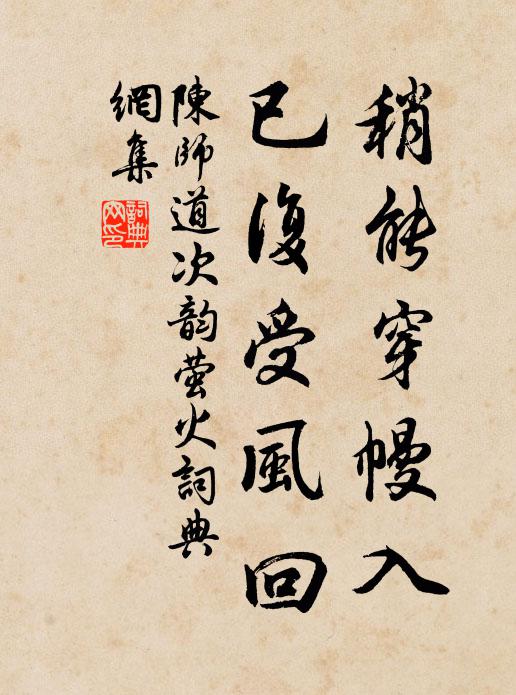 稍能穿幔入
已復受風回
陳師道次韵螢火詞典
網集
詞典
网印